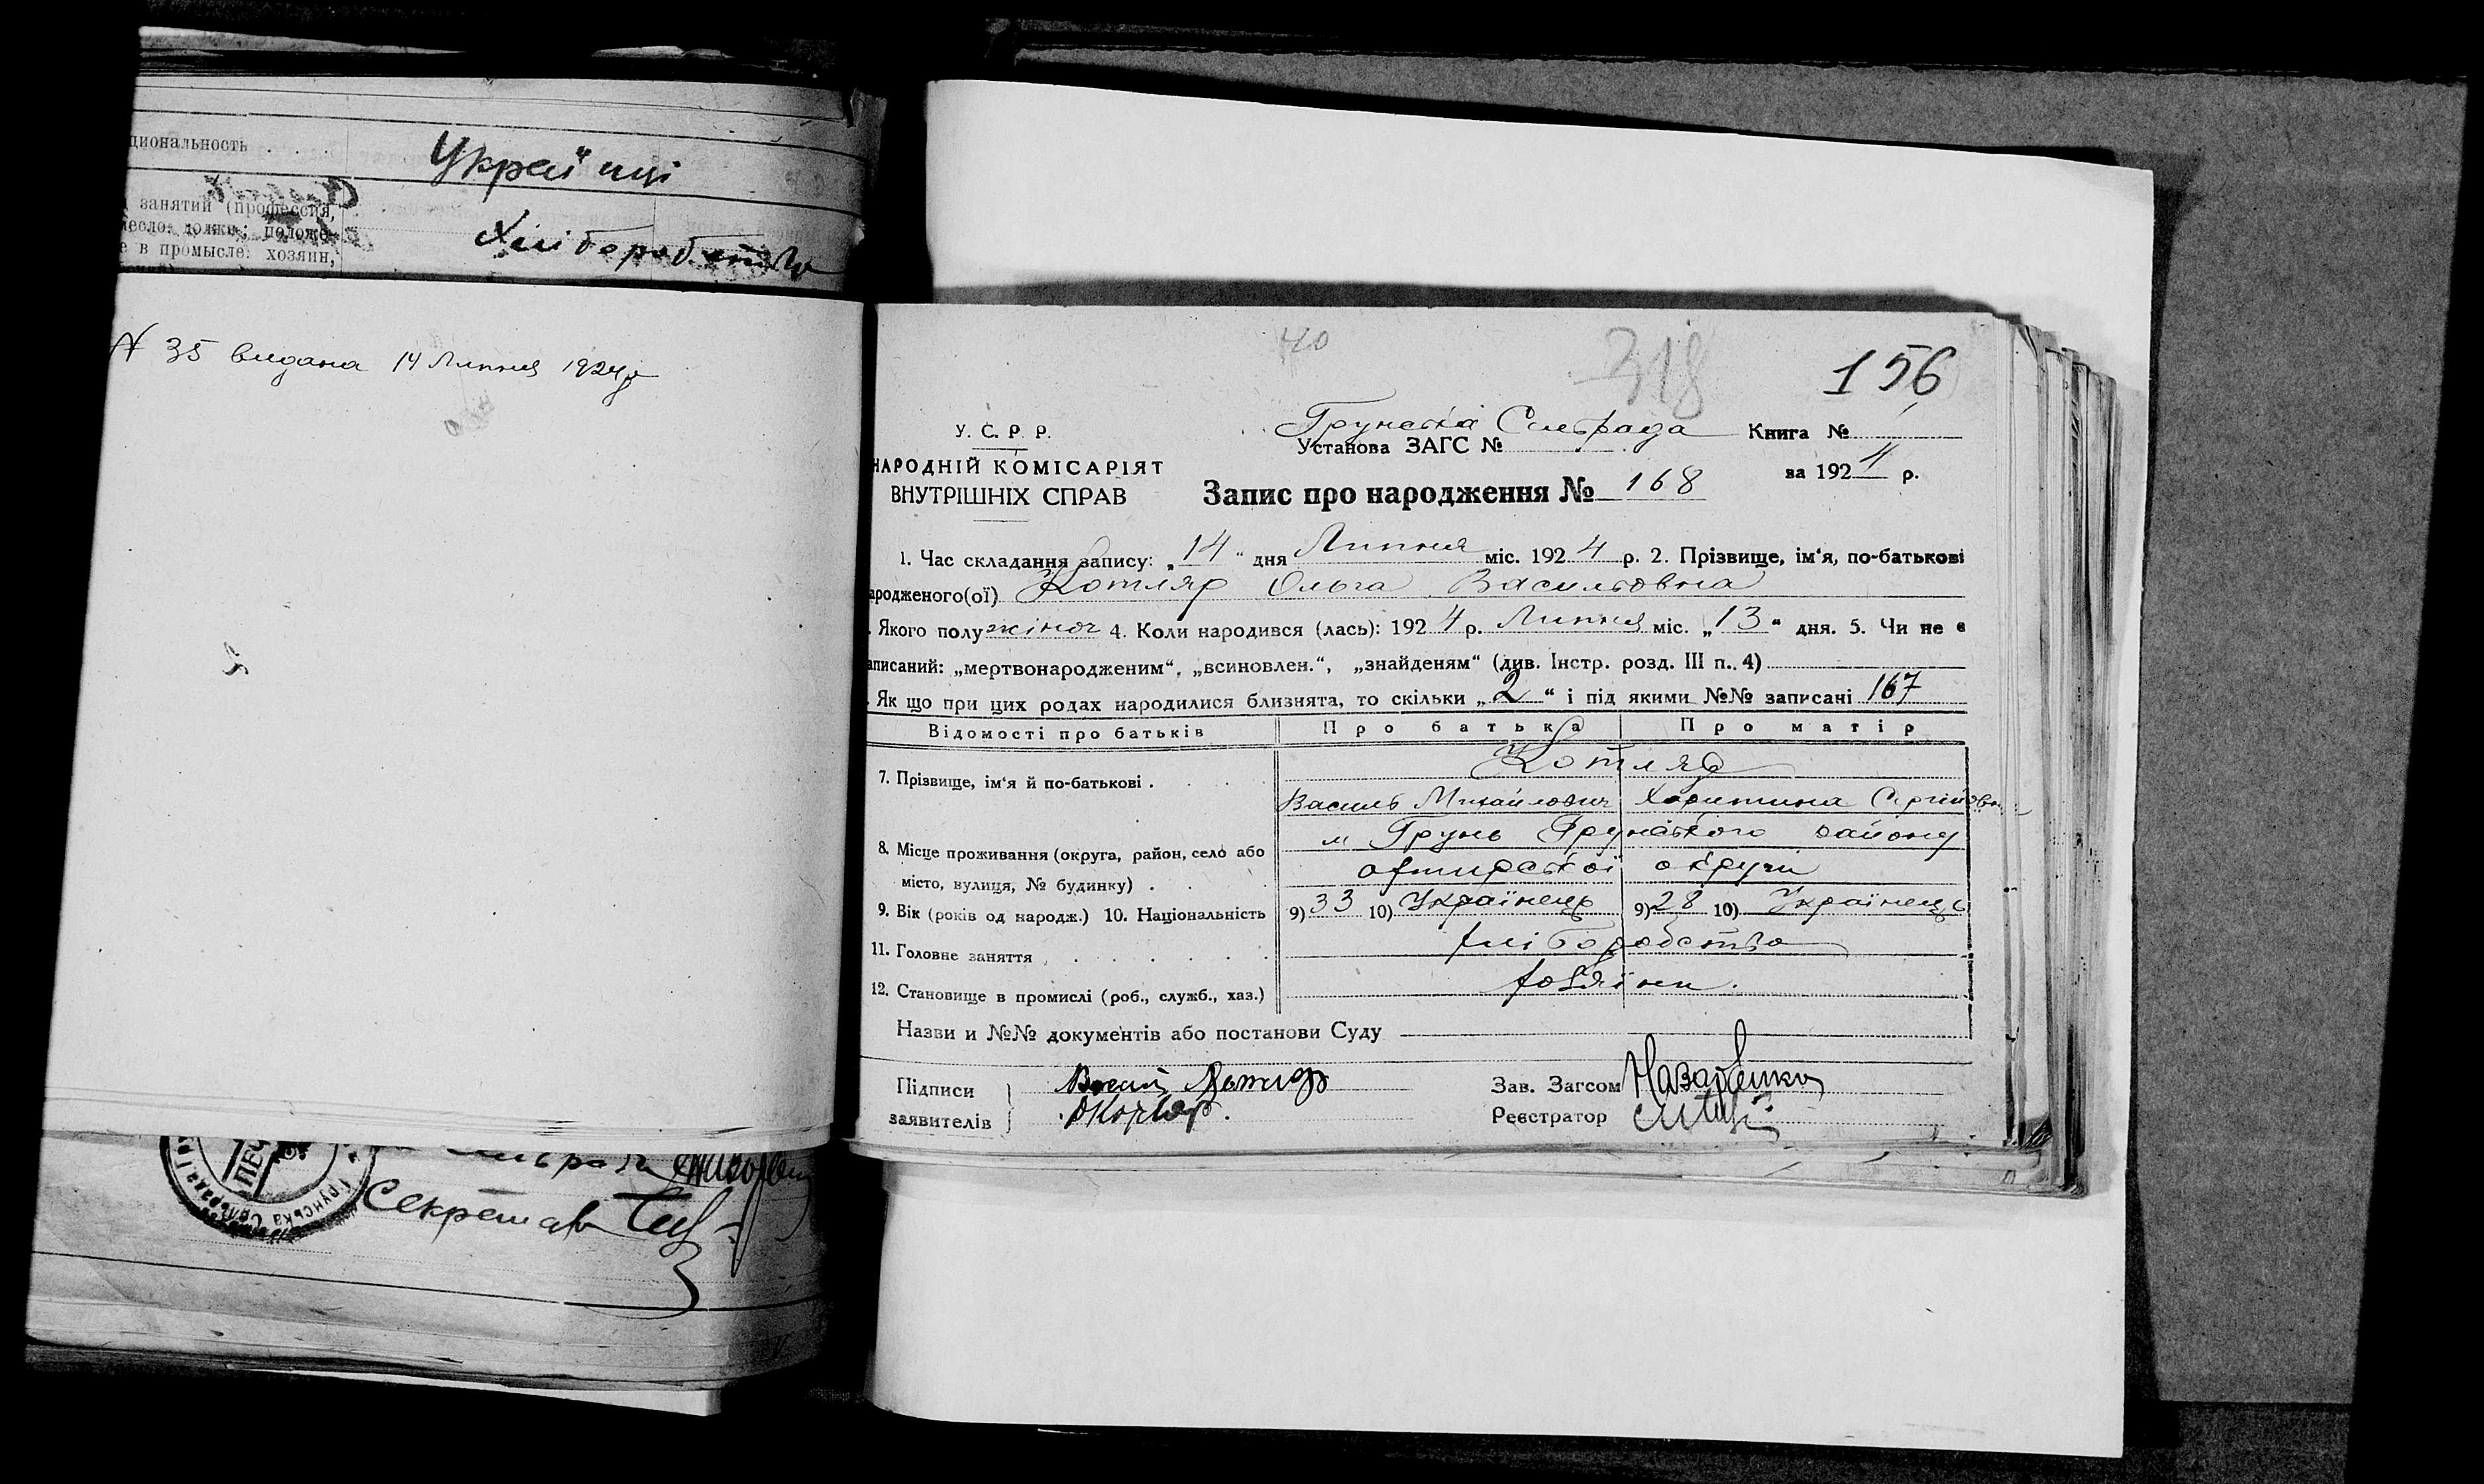 циональность . . .
Україпці
занятий (профессия,
месло: должн; положе-
е в промысле: хозяин,
Хліборобство
N 35 видана 14 Липня 1924 р
40
318
156
У. С. Р. Р.
НАРОДНІЙ КОМІСАРІЯТ
ВНУТРІШНІХ СПРАВ
Грунська Сільрада
Установа ЗАГС №
Книга №
за 1924 р.
Запис про народження № 168
1. Час складання запису: „14“ дня Липня міс. 1924 р. 2. Прізвище, ім'я, по-батькові
ародженого(ої) Котляр Ольга Васильовна
. Якого полу жіноч 4. Коли народився (лась): 1924 р. Липня міс. „13“ дня. 5. Чи не є
аписаний: „мертвонародженим“, „всиновлен.“, „знайденям“ (див. Інстр. розд. III п.. 4)
. Як що при цих родах народилися близнята, то скільки „2“ і під якими №№ записані 167
Відомості про батьків Про батька Про матір
7. Прізвище, ім'я й по-батькові . Котляр
Василь Михайлович Харитина Сергійовна
8. Місце проживання (округа, район, село або
місто, вулиця, № будинку) .
м Грунь Грунського району
охтирської округи
9. Вік (років од народж.) 10. Національність 9) 33 10) Українець 9) 28 10) Українець
11. Головне заняття . хліборобство
12. Становище в промислі (роб., служб., хаз.) хозяіни.
Назви и №№ документів або постанови Суду
Підписи
заявителів
Василь Котляр
ОКотляр.
Зав. Загсом Назаренко
Реєстратор
ПЕЧ
Грунська Сільрада
Секретар